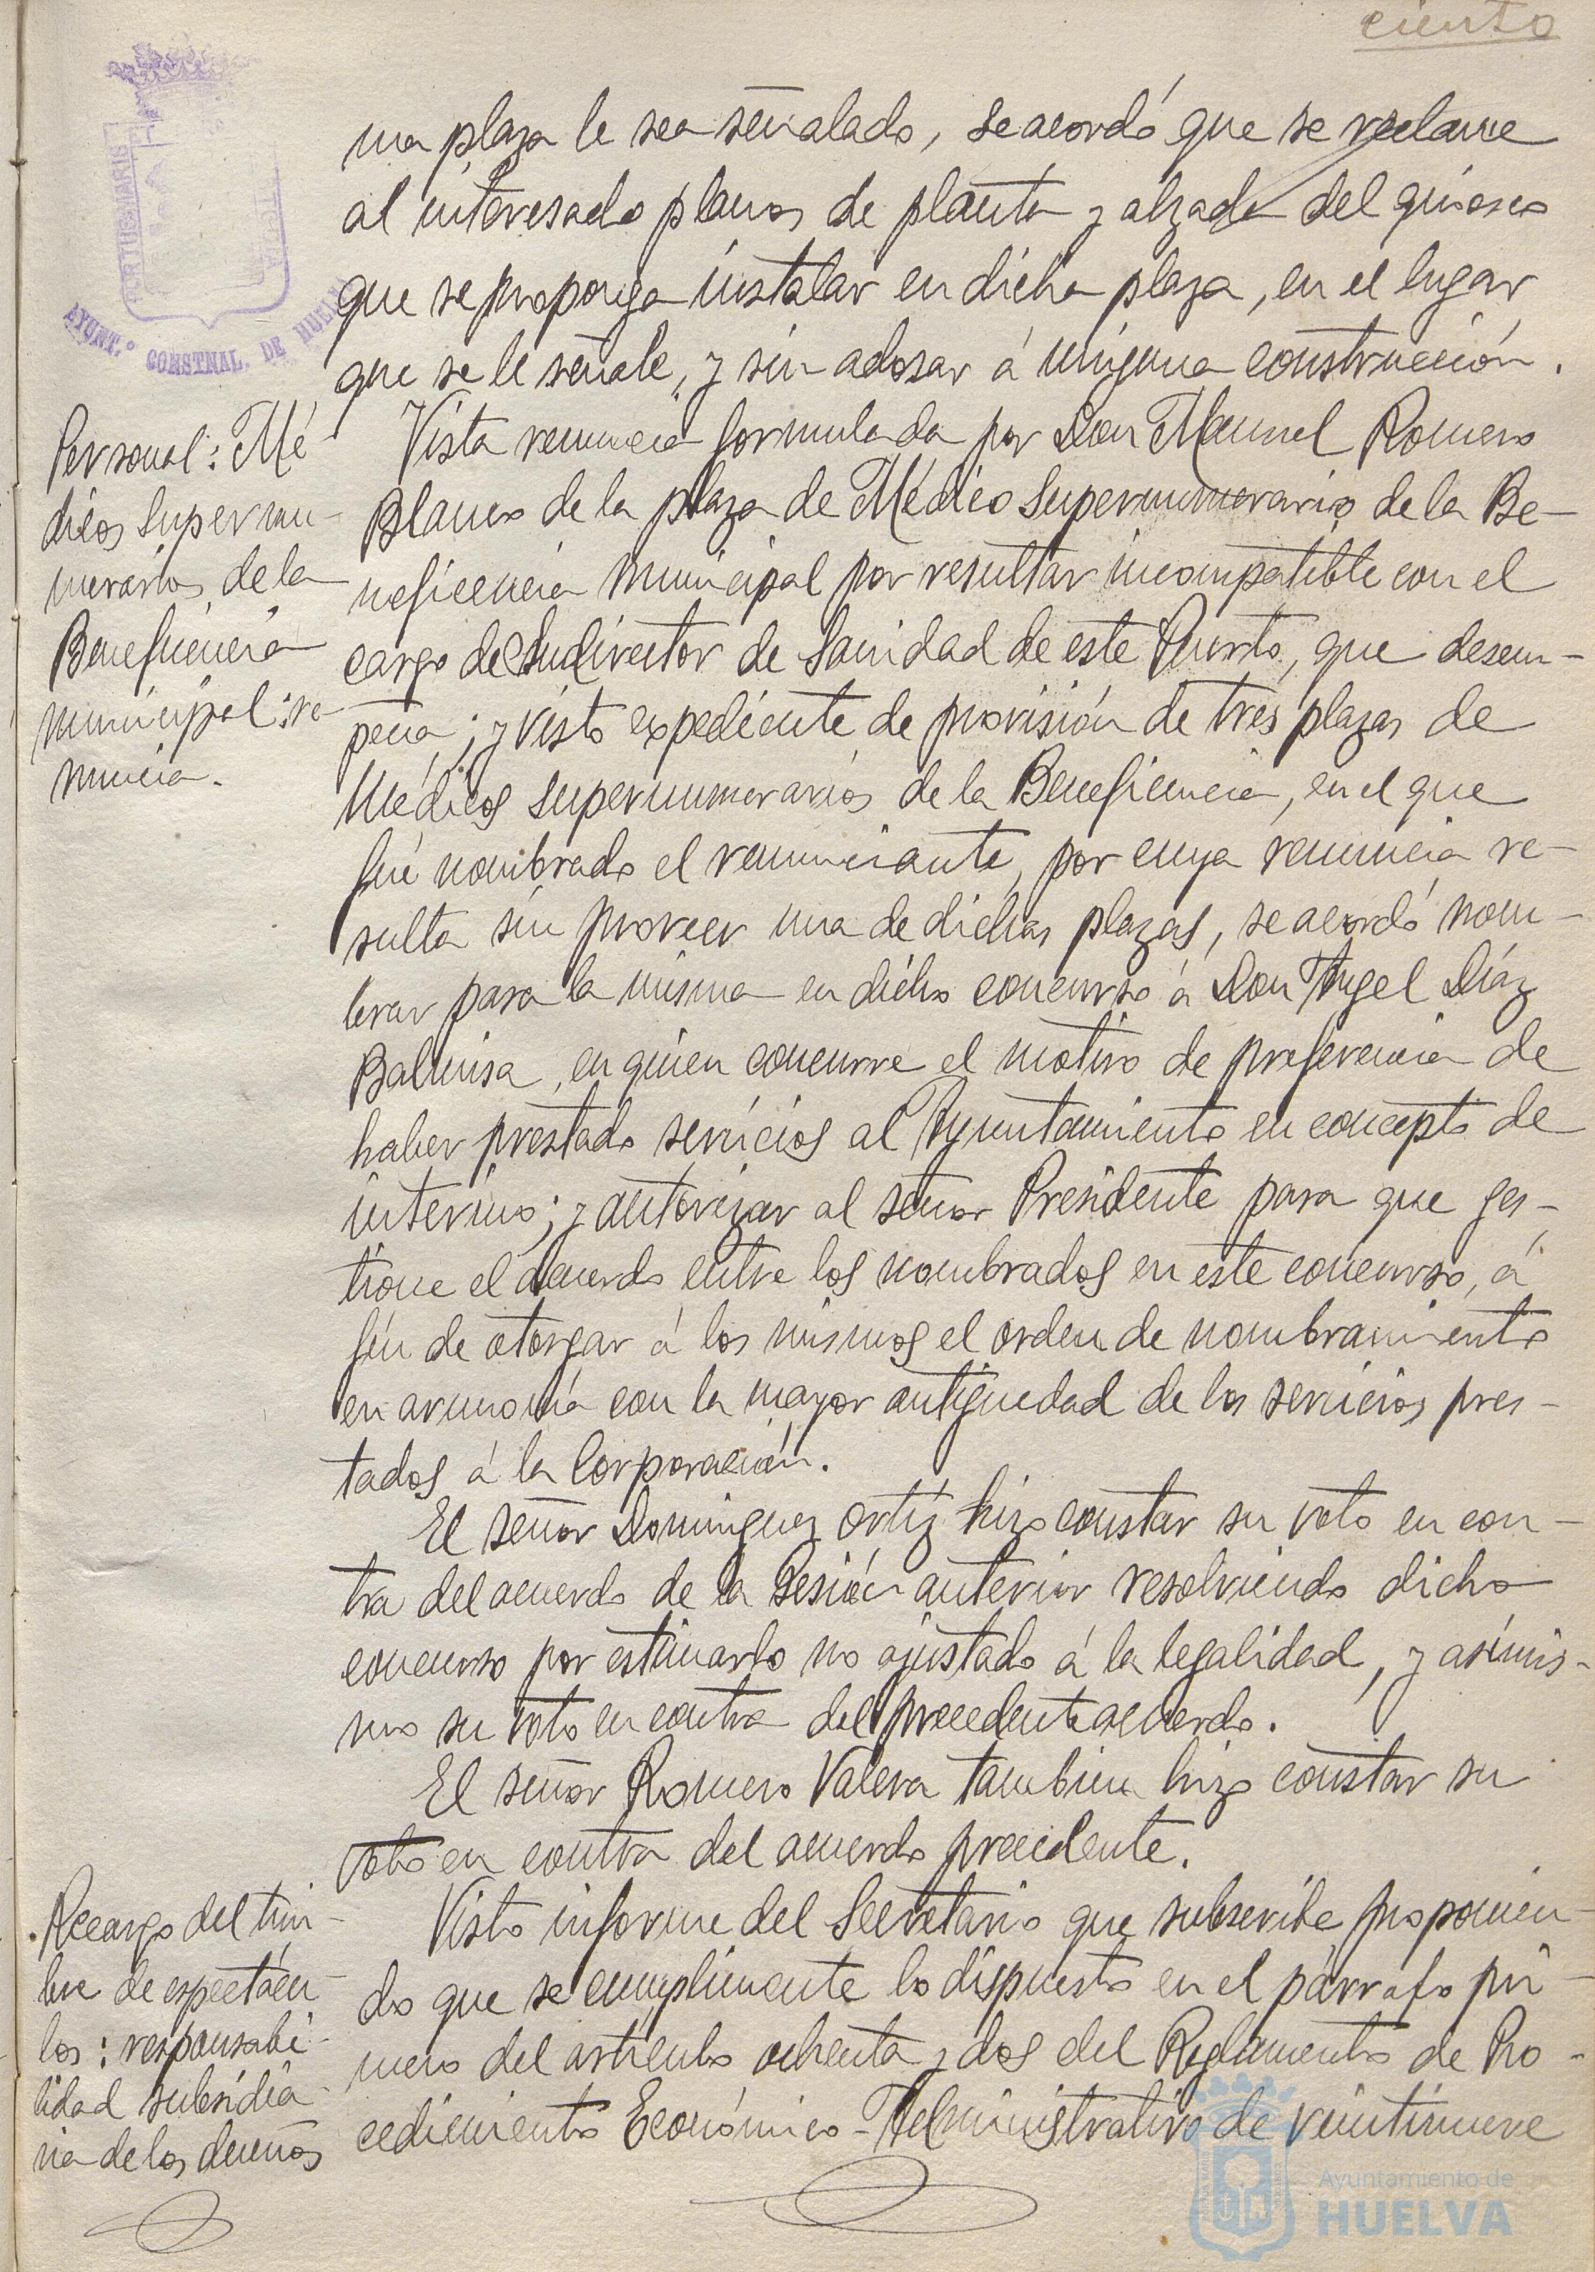 ciento
PORTUS MARIS
AYUNT.º CONSTNAL. DE HUELVA
ma plaza le sea señalado, se acordó que se reclame
al interesado planos de planta y alzado del quiosco
que se proponga instalar en dicha plaza, en el lugar
que se le señale, y sin adosar á ninguna construcción.
Personal: Mé-
dicos Supernu-
merarios de la
Beneficencia
municipal: re-
nuncia.
Vista renuncia formulada por Don Manuel Romero
Blanco de la plaza de Médico Supernumerario de la Be-
neficencia Municipal por resultar incompatible con el
cargo de Sudirector de Sanidad de este Puerto, que desem-
peña; y visto expediente de provisión de tres plazas de
Médicos Supernumerarios de la Beneficencia, en el que
fué nombrado el renunciante, por cuya renuncia re-
sulta sin proveer una de dichas plazas, se acordó nom-
brar para la misma en dicho concurso á Don Angel Díaz
Balmisa, en quien concurre el motivo de preferencia de
haber prestado servicios al Ayuntamiento en concepto de
interino; y autorizar al señor Presidente para que ges-
tione el acuerdo entre los nombrados en este concurso, á
fin de otorgar á los mismos el orden de nombramiento
en armonía con la mayor antigüedad de los servicios pres-
tados á la Corporación.
El señor Dominguez Ortiz hizo constar su voto en con-
tra del acuerdo de la Sesión anterior resolviendo dicho
concurso por estimarlo no ajustado á la legalidad, y asimis-
mo su voto en contra del precedente acuerdo.
El señor Romero Valera tambien hizo constar su
voto en contra del acuerdo precedente.
Recargo del tim-
bre de espectácu-
los: responsabi-
lidad subsidia-
ria de los dueños
Visto informe del Secretario que subscribe, proponien-
do que se cumplimente lo dispuesto en el párrafo pri-
mero del artículo ochenta y dos del Reglamento de Pro-
cedimiento Económico-Administrativo de veintinueve
Ayuntamiento de
HUELVA